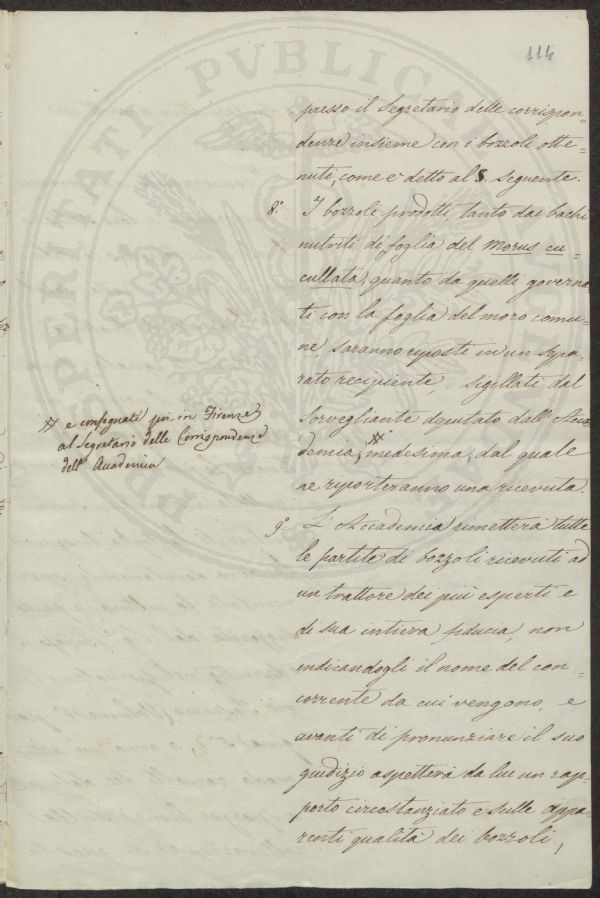 114
presso il Segretario delle corrispon=
denze insieme con i bozzoli otte=
nuti, come è detto al § seguente.
8.° I bozzoli prodotti, tanto dai bachi
nutriti di foglia del Morus cu=
cullata, quanto da quelli governa
ti con la foglia del moro comu=
ne, saranno riposti in un sepa=
rato recipiente, sigillati dal
Sorvegliante deputato dall'Acca
demia, medesima, dal quale
ne riporteranno una ricevuta.
e consegnati poi in Firenze
al Segretario delle Corrispondenze
dell'Accademia
9.° L'Accademia rimetterà tutte
le partite di bozzoli ricevuti ad
un trattore dei più esperti e
di sua intiera fiducia, non
indicandogli il nome del con=
corrente da cui vengono, e
avanti di pronunziare il suo
giudizio aspetterà da lui un rap=
porto circostanziato e sulle appa=
renti qualità dei bozzoli,
PROSPERITATI PVBLICAE AVGENDAE